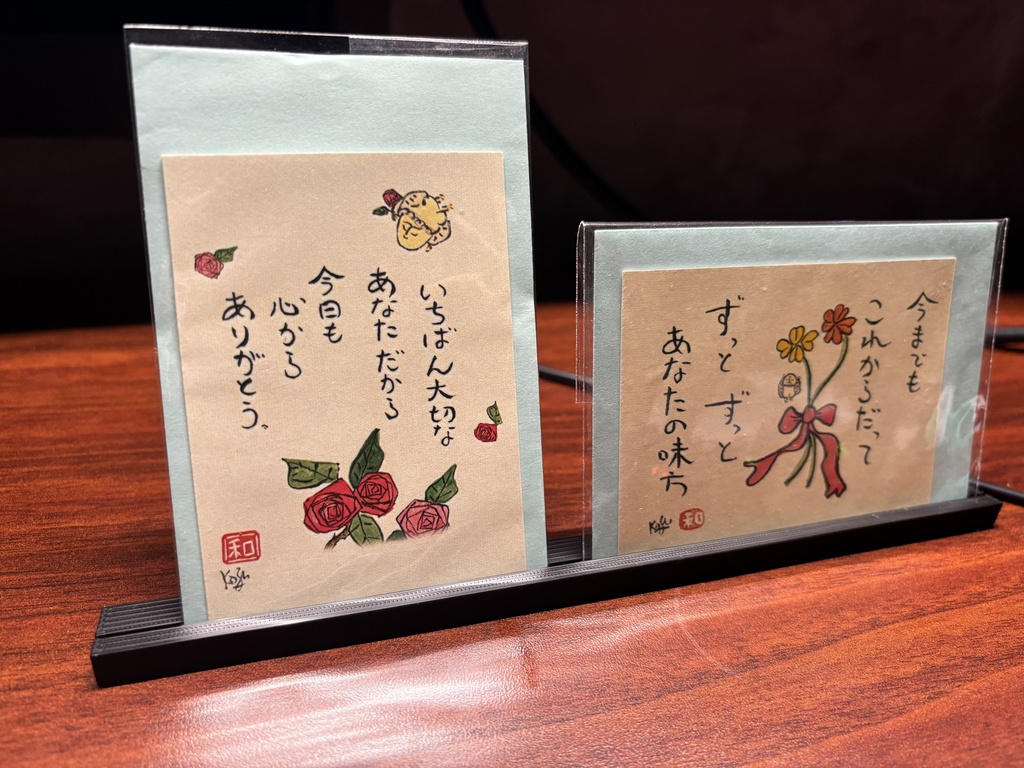 いちばん大切な
あなただから
今日も
心から
ありがとう。
和
Kazu
今までも
これからだって
ずっと ずっと
あなたの味方
Kazu
和